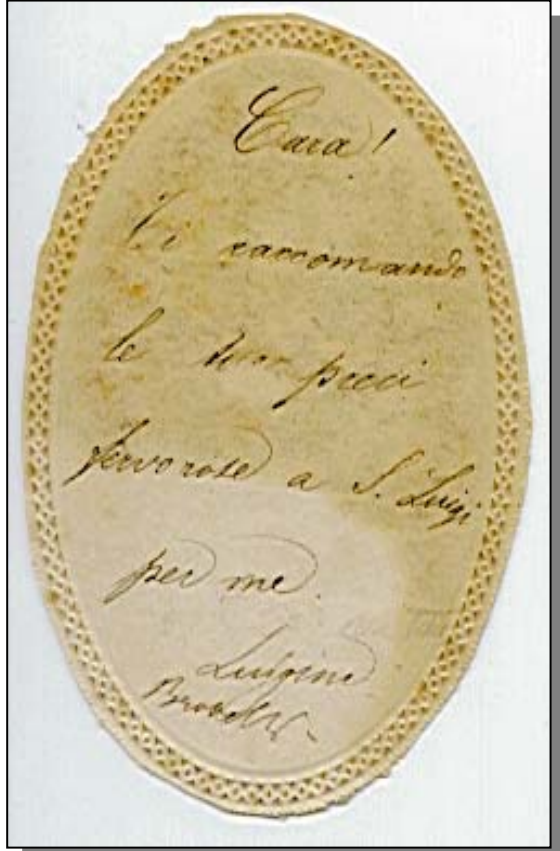 Cara!
Ti raccomando
le tue preci
fervorose a S. Luigi
per me.
Luigina